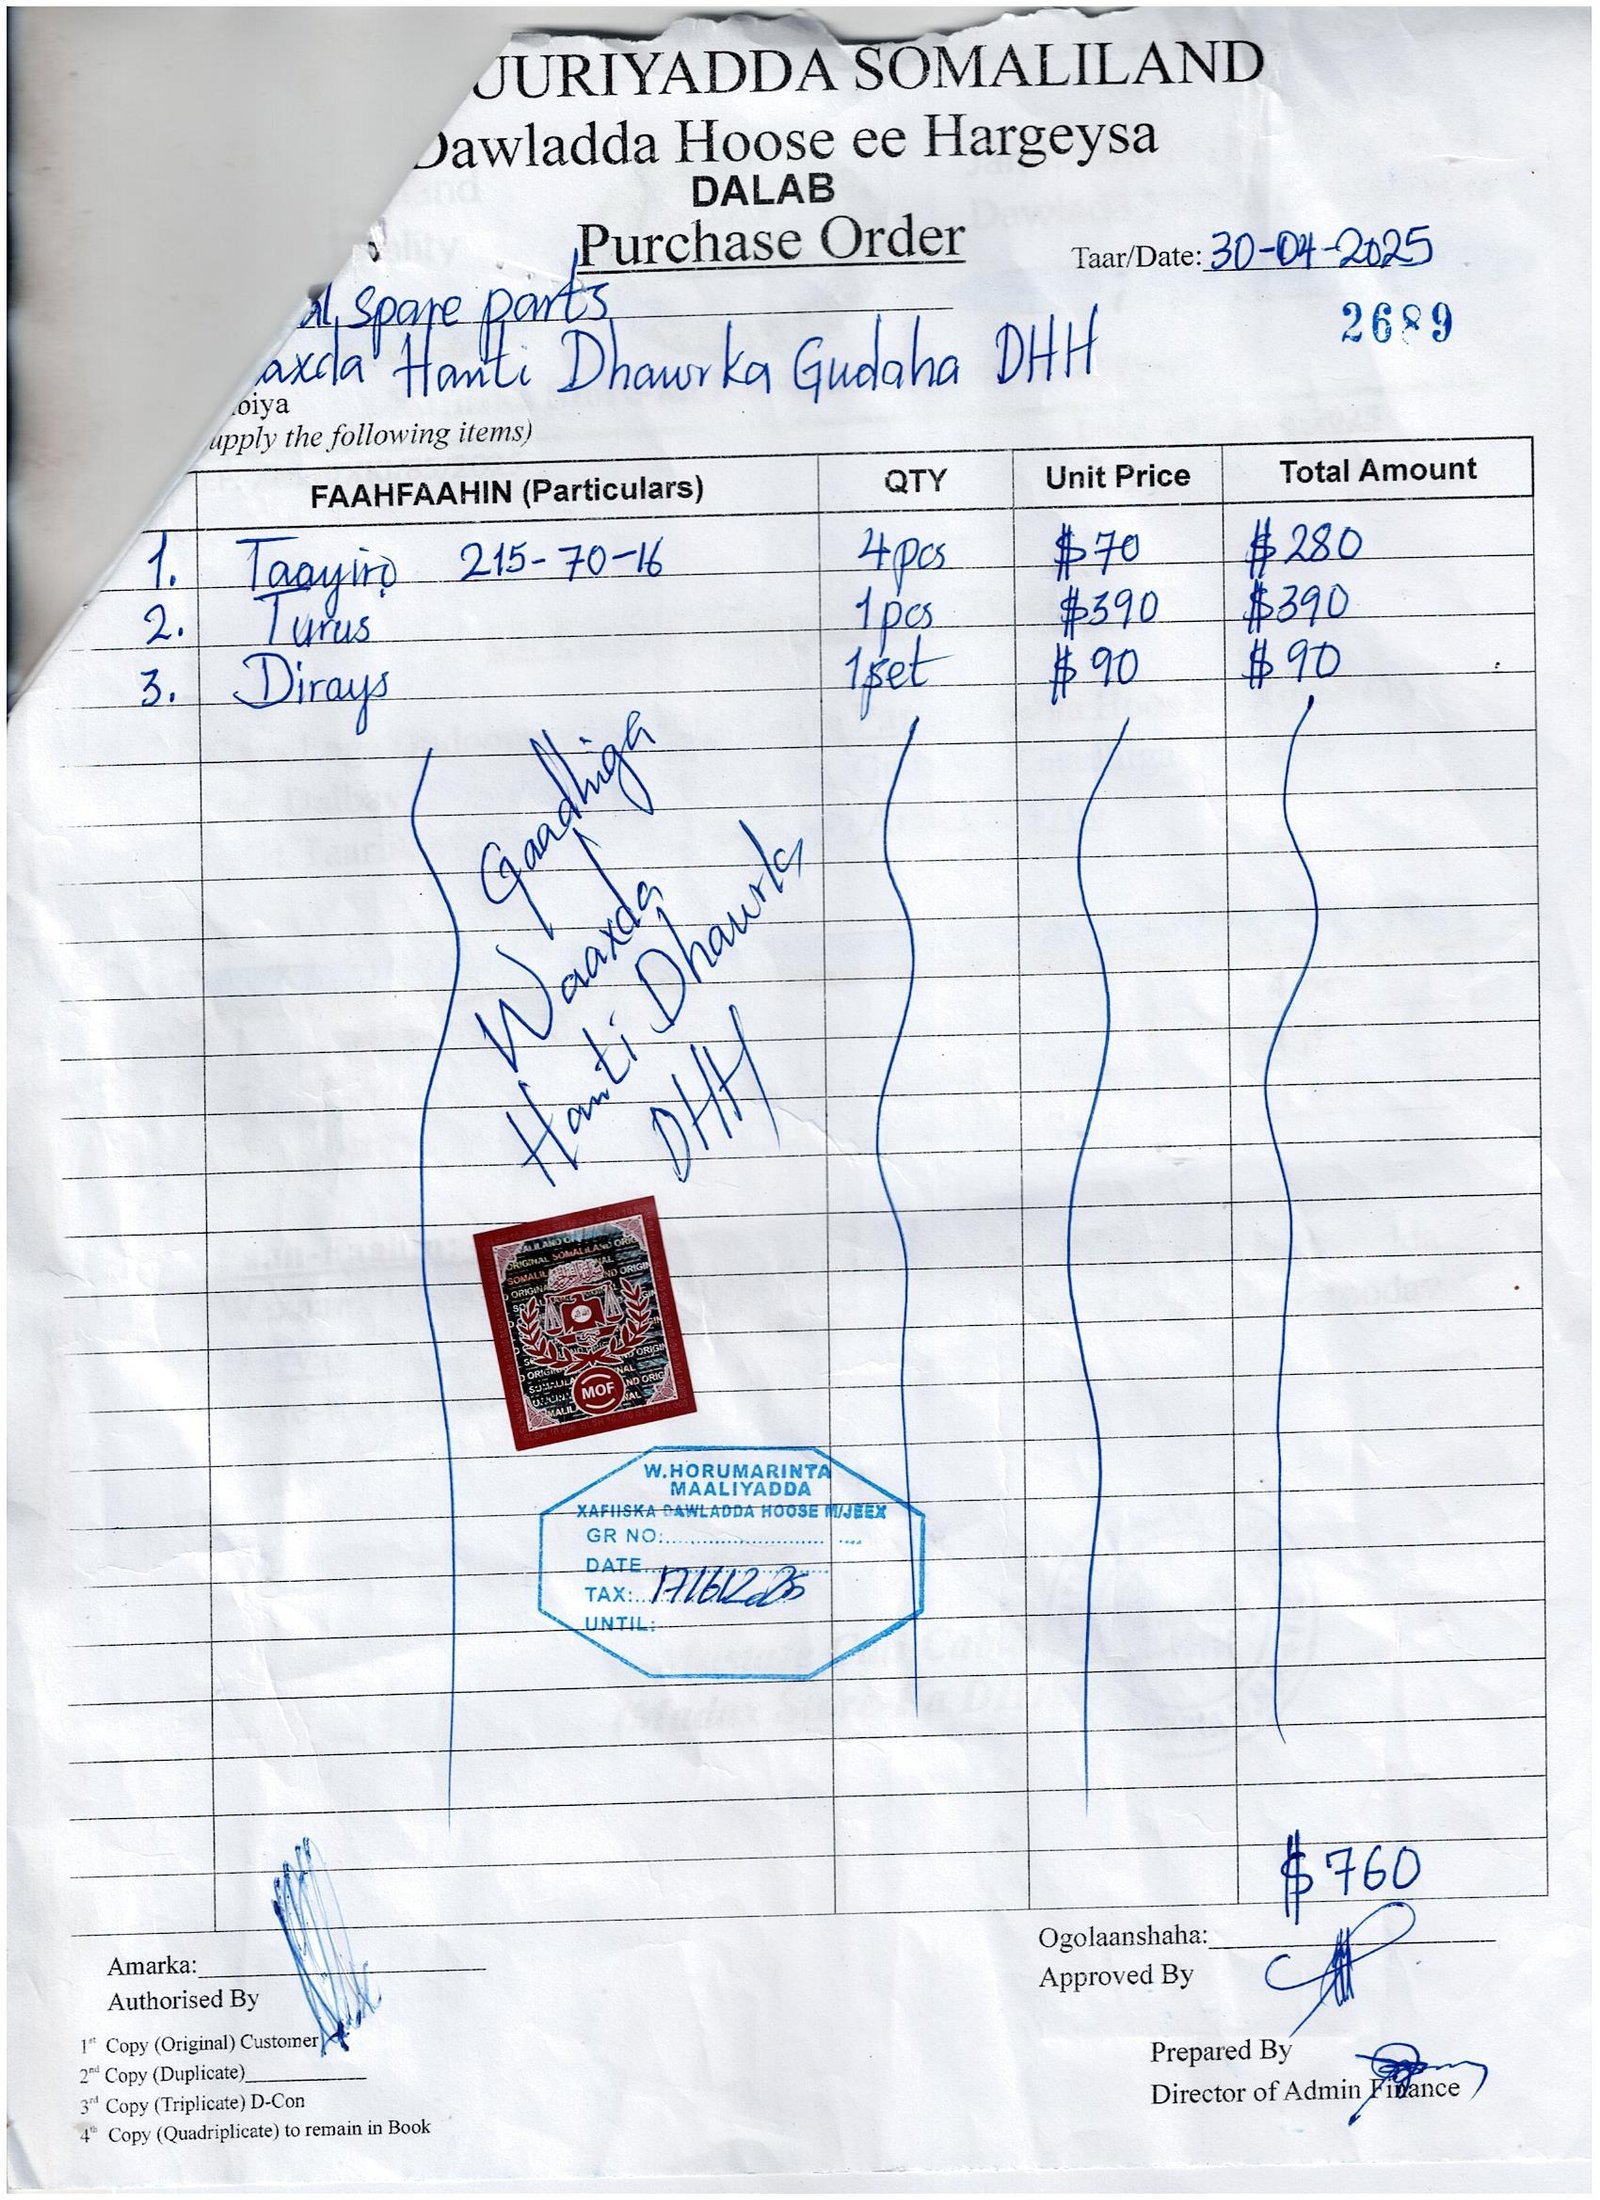 UURIYADDA SOMALILAND
Dawladda Hoose ee Hargeysa
DALAB
Purchase Order
Taar/Date: 30-04-2025
spare parts
2689
axda Hanti Dhawrka Gudaha DHH
oiya
upply the following items)
FAAHFAAHIN (Particulars) QTY Unit Price Total Amount
1. Taayiro 215-70-16 4pcs $70 $280
2. Turus 1pcs $390 $390
3. Dirays 1set $90 $90
Gaadhiga
Waaxda
Hanti Dhawrka
DHH
MOF
W.HORUMARINTA
MAALIYADDA
XAFIISKA DAWLADDA HOOSE M/JEEX
GR NO:
DATE
TAX:
UNTIL:
$760
Amarka:
Authorised By
Ogolaanshaha:
Approved By
1st Copy (Original) Customer
2nd Copy (Duplicate)
3rd Copy (Triplicate) D-Con
4th Copy (Quadriplicate) to remain in Book
Prepared By
Director of Admin Finance